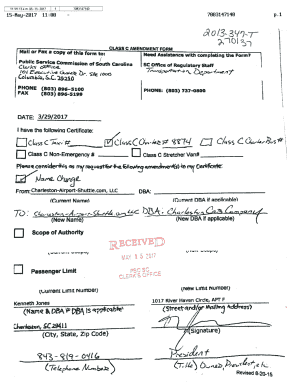 15-May-2017 11:00 7083147148 p.1
2013-347-T
270137
CLASS C AMENDMENT FORM
Mail or Fax a copy of this form to: Need Assistance with completing the Form?
Public Service Commission of South Carolina SC Office of Regulatory Staff
Clerks Office Transportation Department
101 Executive Center Dr. Ste 1000
Columbia, SC 29210
PHONE (803) 896-5100 PHONE: (803) 737-0800
FAX (803) 896-5199
DATE: 3/29/2017
I have the following Certificate:
Class C Taxi # Class C Charter # 8874 Class C Charter Bus #
Class C Non-Emergency # Class C Stretcher Van#
Please consider this as my request for the following amendment(s) to my Certificate:
Name Change
From: Charleston-Airport-Shuttle.com, LLC DBA:
(Current Name) (Current DBA if applicable)
TO: DBA: Charleston Cab Company
(New Name) (New DBA if applicable)
Scope of Authority
RECEIVED
MAY 15 2017
PSC SC
CLERK'S OFFICE
Passenger Limit
(Current Limit Number) (New Limit Number)
Kenneth Jones 1017 River Haven Circle, APT F
(Name & DBA if DBA is applicable) (Street and/or Mailing Address)
Charleston, SC 29411
(City, State, Zip Code) (Signature)
843-819-0416 President
(Telephone Number) (Title) Owner, President, etc.
Revised 8-20-15